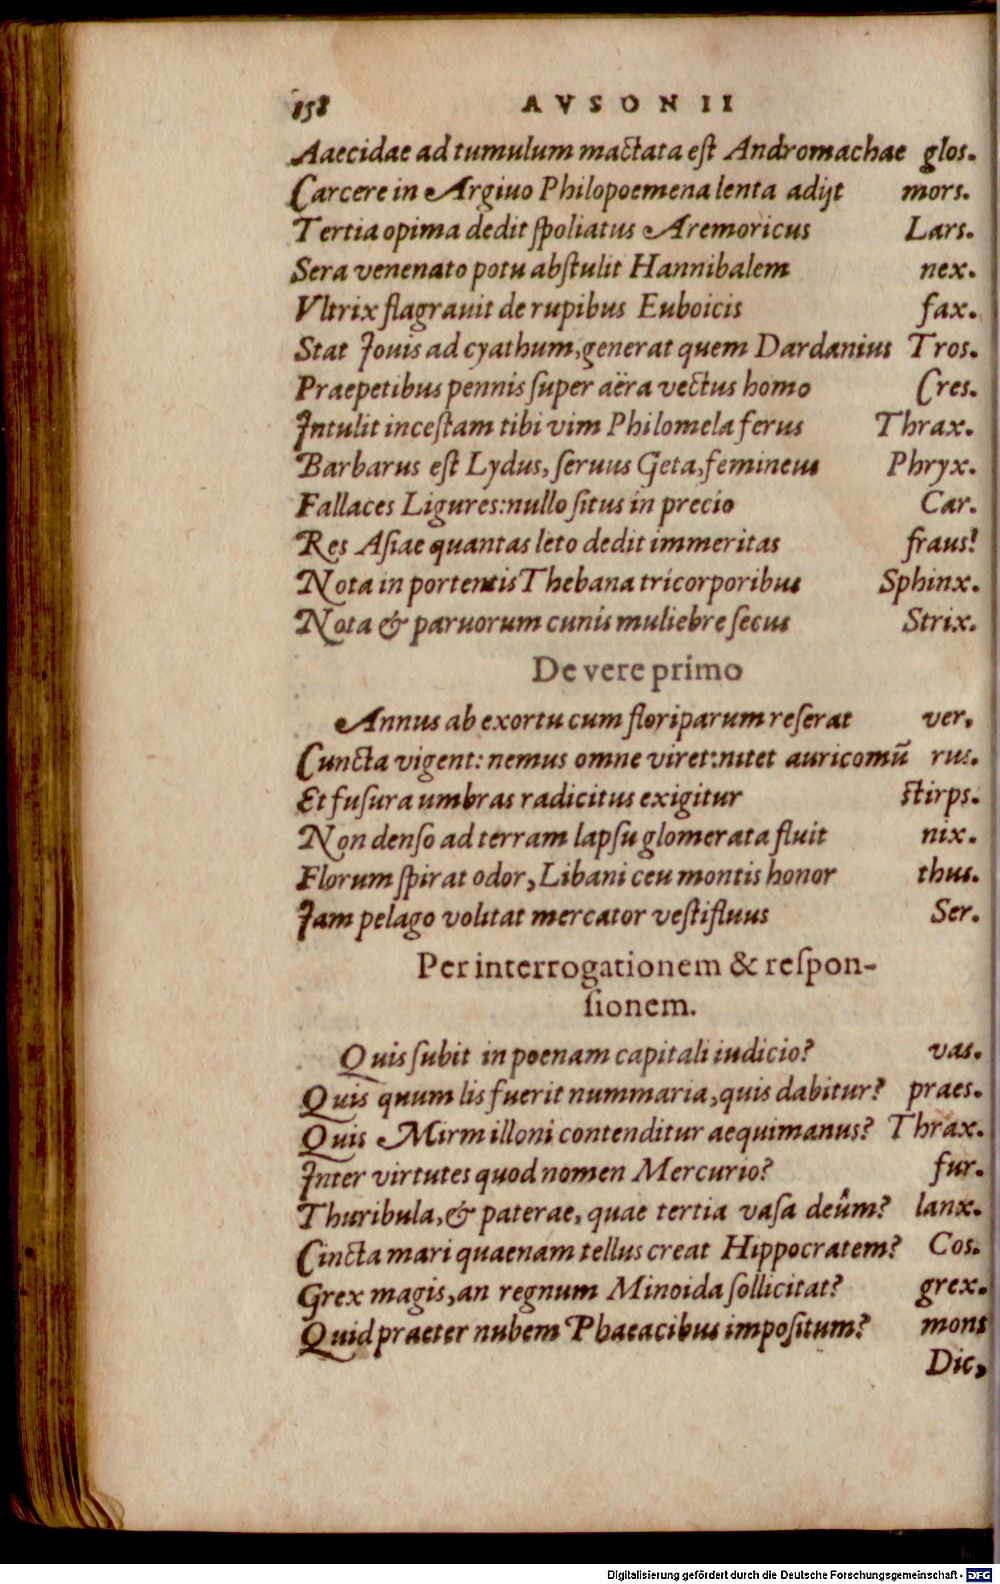 158 AVSONII
Aaecidae ad tumulum mactata est Andromachae glos.
Carcere in Argiuo Philopoemena lenta adijt mors.
Tertia opima dedit spoliatus Aremoricus Lars.
Sera venenato potu abstulit Hannibalem nex.
Vltrix flagrauit de rupibus Euboicis fax.
Stat Jouis ad cyathum, generat quem Dardanius Tros.
Praepetibus pennis super aëra vectus homo Cres.
Intulit incestam tibi vim Philomela ferus Thrax.
Barbarus est Lydus, seruus Geta, femineus Phryx.
Fallaces Ligures: nullo situs in precio Car.
Res Asiae quantas leto dedit immeritas fraus!
Nota in portentis Thebana tricorporibus Sphinx.
Nota & paruorum cunis muliebre secus Strix.
De vere primo
Annus ab exortu cum floriparum reserat ver,
Cuncta vigent: nemus omne viret: nitet auricomũ rus.
Et fusura umbras radicitus exigitur stirps.
Non denso ad terram lapsu glomerata fluit nix.
Florum spirat odor, Libani ceu montis honor thus.
Jam pelago volitat mercator vestifluus Ser.
Per interrogationem & respon-
sionem.
Quis subit in poenam capitali iudicio? vas.
Quis quum lis fuerit nummaria, quis dabitur? praes.
Quis Mirmilloni contenditur aequimanus? Thrax.
Inter virtutes quod nomen Mercurio? fur.
Thuribula, & paterae, quae tertia vasa deûm? lanx.
Cincta mari quaenam tellus creat Hippocratem? Cos.
Grex magis, an regnum Minoida sollicitat? grex.
Quid praeter nubem Phaeacibus impositum? mons
Dic,
Digitalisierung gefördert durch die Deutsche Forschungsgemeinschaft - DFG